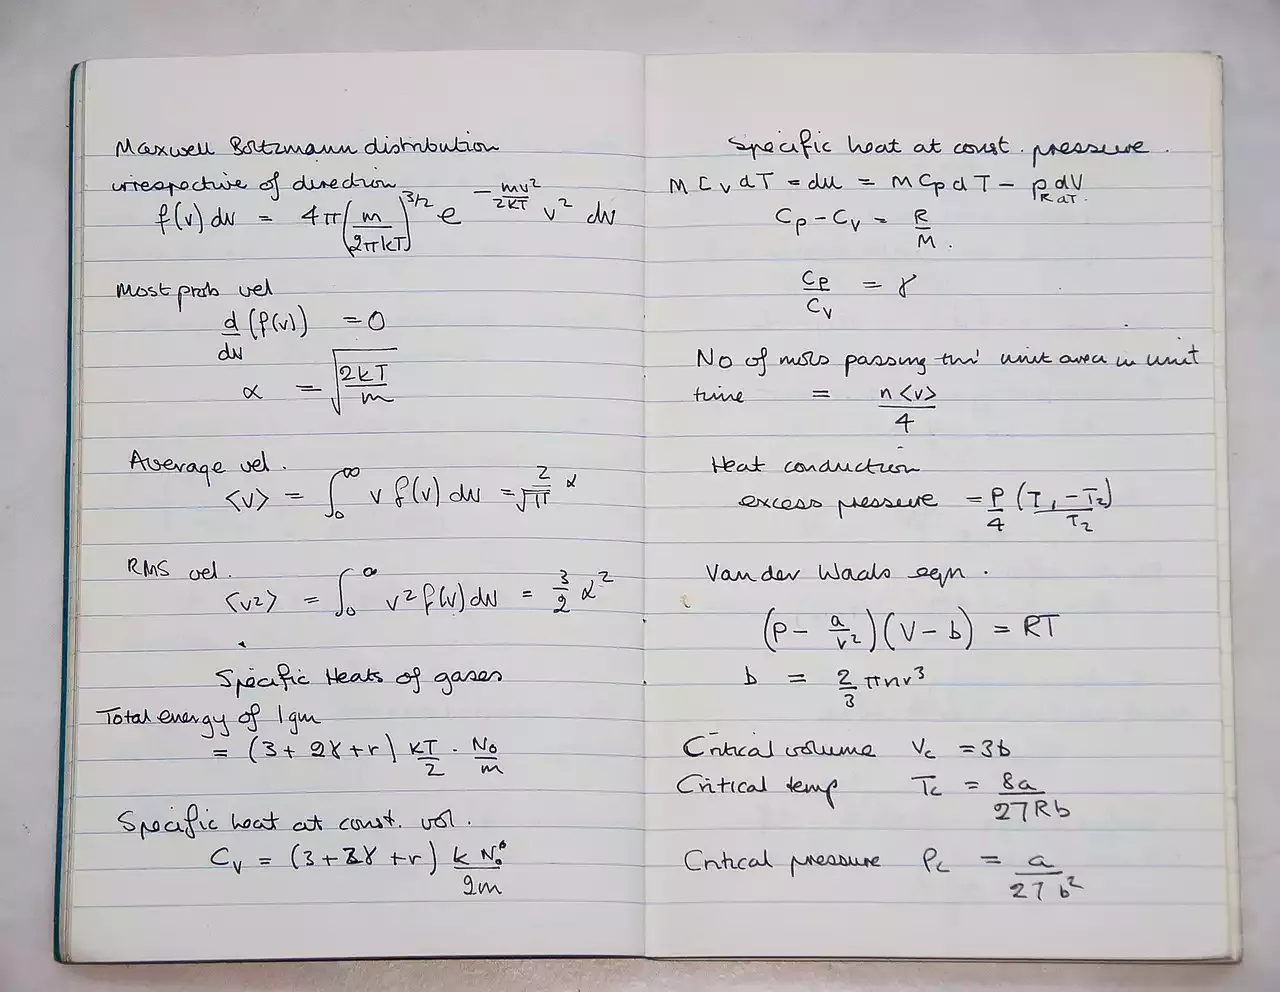 Maxwell Boltzmann distribution
irrespective of direction
f(v) dv = 4π(m/2πkT)^3/2 e^-mv²/2kT v² dv
Most prob vel
d/dv (f(v)) = 0
α = √(2kT/m)
Average vel.
<v> = ∫₀^∞ v f(v) dv = 2/√π α
RMS vel.
<v²> = ∫₀^∞ v² f(v) dv = 3/2 α²
Specific Heats of gases
Total energy of 1 gm
= (3 + 2γ + r) kT/2 · N₀/m
Specific heat at const. vol.
Cv = (3 + γ + r) k N₀/2m
Specific heat at const. pressure.
M Cv dT = du = M Cp dT - p dV
R dT.
Cp - Cv = R/M.
Cp/Cv = γ
No of mols passing thro' unit area in unit
time = n <v>/4
Heat conduction
excess pressure = P/4 (T₁ - T₂)/T₂
Van der Waals eqn.
(P - a/v²)(V - b) = RT
b = 2/3 πnr³
Critical volume Vc = 3b
Critical temp Tc = 8a/27Rb
Critical pressure Pc = a/27b²